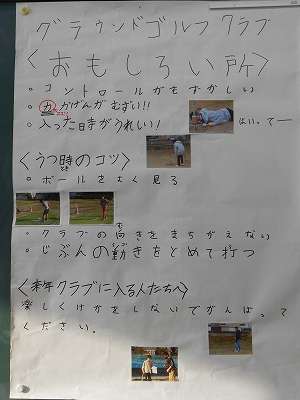 グラウンドゴルフクラブ
<おもしろい所>
。コントロールがむずかしい
。力かげんがむずい!!
。入った時がうれしい!
はいってー
<うつ時のコツ>
。ボールをよく見る
。クラブの向きをまちがえない
。じぶんの動きをとめて打つ
<来年クラブに入る人たちへ>
楽しくけがをしないでがんばって
ください。